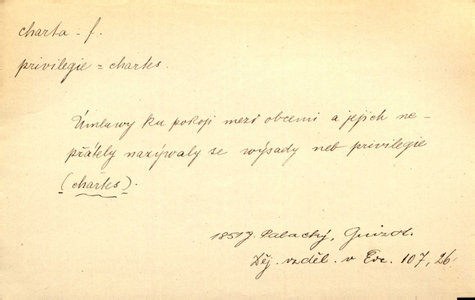 charta - f.
privilegie = chartes.
Úmluwy ku pokoji mezi obcemi a jejich ne-
přátely nazýwaly se wýsady neb privilegie
(chartes).
1851 J. Palacký, Guizot.
Děj. vzděl. v Evr. 107, 26.